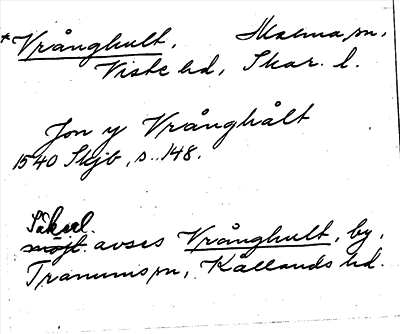 *Vrånghult, Malma sn,
Viste hd, Skar. l.
Jon y Vrånghålt
1540 Skjb, s. 148.
Säkerl.
möjl. avses Vrånghult, by,
Tranums sn, Kållands hd.